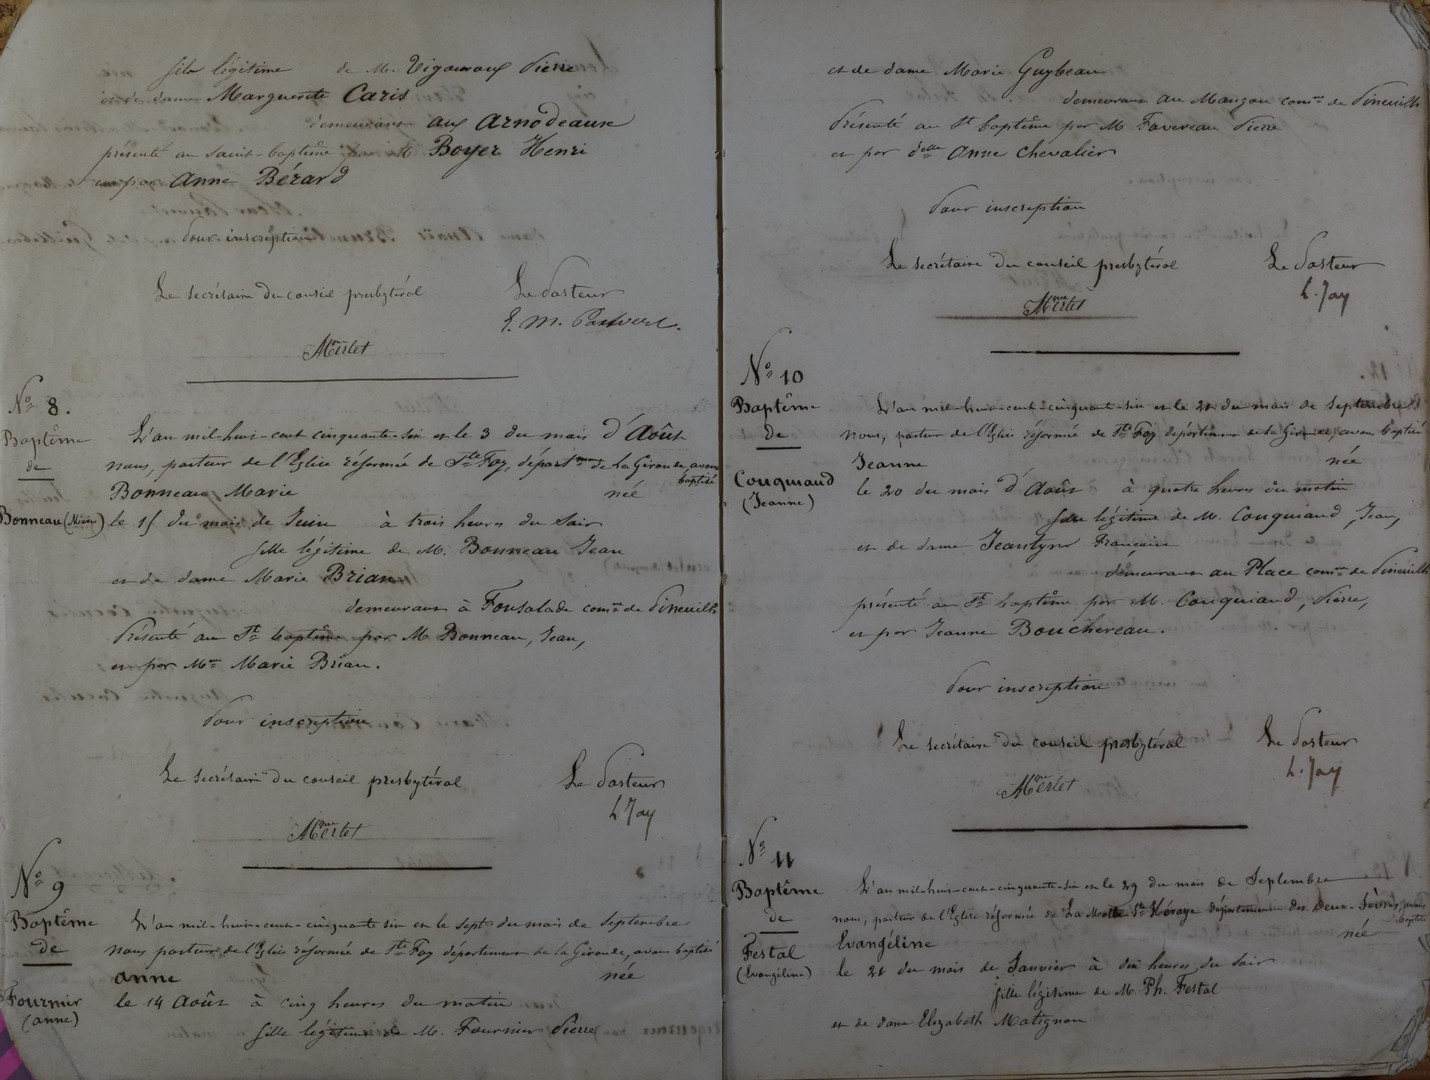 fils légitime de M. Vigouroux Pierre
et de dame Marguerite Caris
demeurant aux Arnodeaux
présenté au saint-baptême par M. Boyer Henri
et par Anne Bérard
Pour inscription
Le secrétaire du conseil presbytéral Le Pasteur
Merlet
No 8.
Baptême
de
Bonneau (Marie)
L'an mil-huit-cent cinquante-six et le 3 du mois d'Août
nous, pasteur de l'Eglise réformée de Ste Foy, départmt de la Gironde, avons
baptisé
Bonneau Marie née
le 15 du mois de Juin à trois heures du soir
fille légitime de M. Bonneau Jean
et de dame Marie Brian
demeurant à Fonsalade comne de Pineuilh
Présenté au St baptême par M Bonneau, Jean,
et par Me Marie Brian.
Pour inscription
Le secrétaire du conseil presbytéral Le Pasteur
Merlet L. Jay
No 9
Baptême
de
Fournier
(anne)
L'an mil-huit-cent-cinquante six et le sept du mois de septembre
nous pasteur de l'Eglise réformée de Ste Foy département de la Gironde, avons baptisé
anne née
le 14 Août à cinq heures du matin
fille légitime de M. Fournier Pierre
et de dame Marie Guybeau
demeurant au comne de Pineuilh
Présenté au St baptême par M Favereau Pierre
et par delle Anne Chevalier
Pour inscription
Le secrétaire du conseil presbytéral Le Pasteur
Merlet L. Jay
No 10
Baptême
de
Couquiaud
(Jeanne)
L'an mil-huit-cent-cinquante-six et le 21 du mois de Septembre
nous, pasteur de l'Eglise réformée de Ste Foy département de la Gironde, avons baptisé
Jeanne née
le 20 du mois d'Août à quatre heures du matin
fille légitime de M. Couquiaud, Jean,
et de dame Françoise
demeurant au Place comne de Pineuilh
présenté au St baptême par M. Couquiaud, Pierre,
et par Jeanne Bouchereau.
Pour inscription
Le secrétaire du conseil presbytéral Le Pasteur
Merlet L. Jay
No 11
Baptême
de
Festal
(Evangéline)
L'an mil-huit-cent-cinquante-six et le 29 du mois de Septembre
nous, pasteur de l'Eglise réformée de La Mothe St Héraye département des Deux-Sèvres, avons
baptisé
Evangéline née
le 21 du mois de Janvier à dix heures du soir
fille légitime de M. Ph. Festal
et de dame Elizabeth Matignon